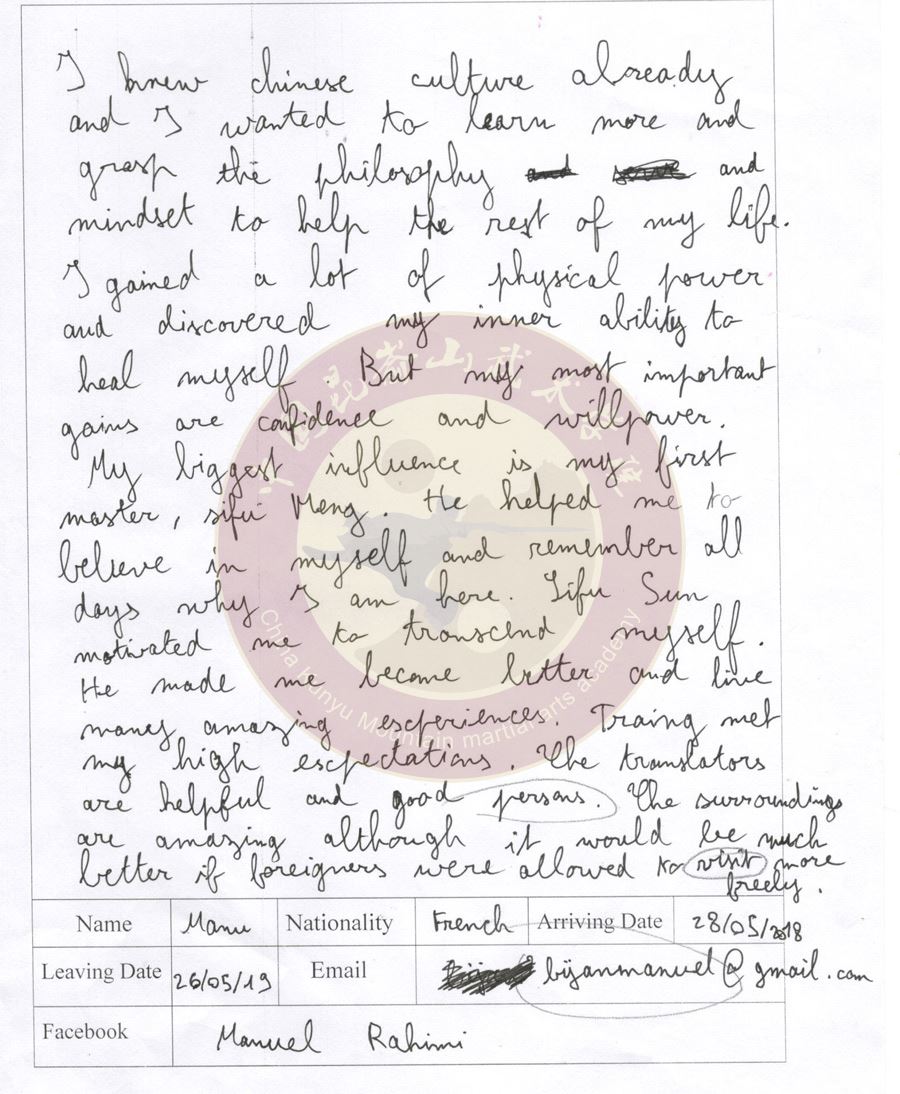 I knew chinese culture already
and I wanted to learn more and
grasp the philosophy and
mindset to help the rest of my life.
I gained a lot of physical power
and discovered my inner ability to
heal myself. But my most important
gains are confidence and willpower.
My biggest influence is my first
master, sifu Meng. He helped me to
believe in myself and remember all
days why I am here. Sifu Sun
motivated me to transcend myself.
He made me become better and live
many amazing experiences. Traing met
my high expectations. The translators
are helpful and good persons. The surroundings
are amazing although it would be much
better if foreigners were allowed to visit more
freely.
Name Manu Nationality French Arriving Date 28/05/2018
Leaving Date 26/05/19 Email bijanmanuel@gmail.com
Facebook Manuel Rahimi
China kunyu Mountain martial arts academy